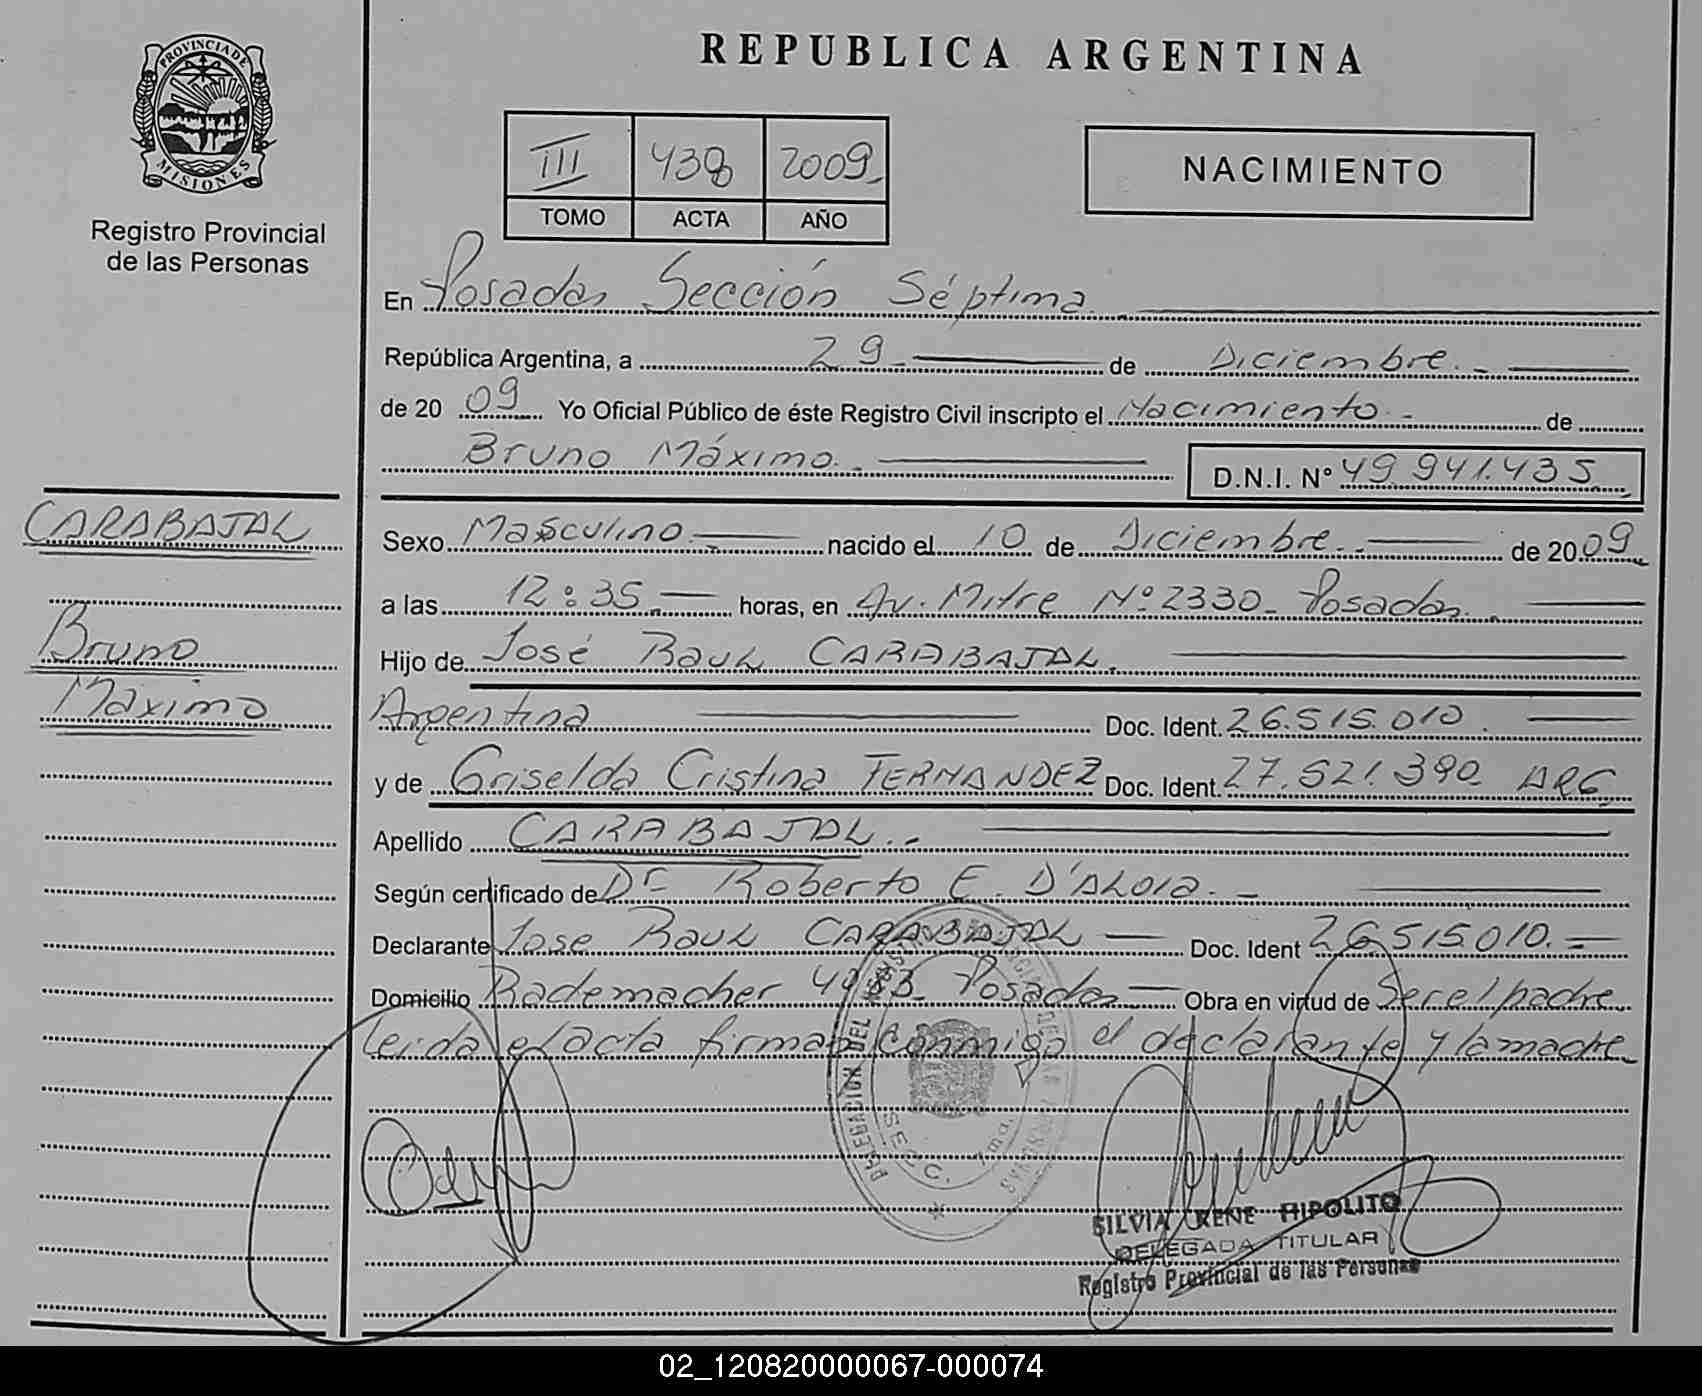 PROVINCIA DE
MISIONES
Registro Provincial
de las Personas
REPUBLICA ARGENTINA
III 438 2009
TOMO ACTA AÑO
NACIMIENTO
En Posadas Sección Séptima.
República Argentina, a 29 de Diciembre.
de 20 09 Yo Oficial Público de éste Registro Civil inscripto el Nacimiento de
Bruno Máximo. D.N.I. Nº 49 941.435
CARABAJAL
Bruno
Máximo
Sexo Masculino nacido el 10 de Diciembre. de 2009
a las 12:35 horas, en Av. Mitre Nº 2330 Posadas.
Hijo de José Raul CARABAJAL.
Argentina Doc. Ident. 26.515.010.
y de Griselda Cristina FERNANDEZ Doc. Ident. 27.521.390 ARG.
Apellido CARABAJAL.
Según certificado de Dr Roberto E. D'ALOIA.
Declarante Jose Raul CARABAJAL Doc. Ident 26.515.010.
Domicilio Rademacher Posadas Obra en virtud de Ser el padre
Leida el acta firman conmigo el declarante y la madre
DELEGACION DEL
SECC. 7ma.
SILVIA IRENE HIPOLITO
DELEGADA TITULAR
Registro Provincial de las Personas
02_120820000067-000074